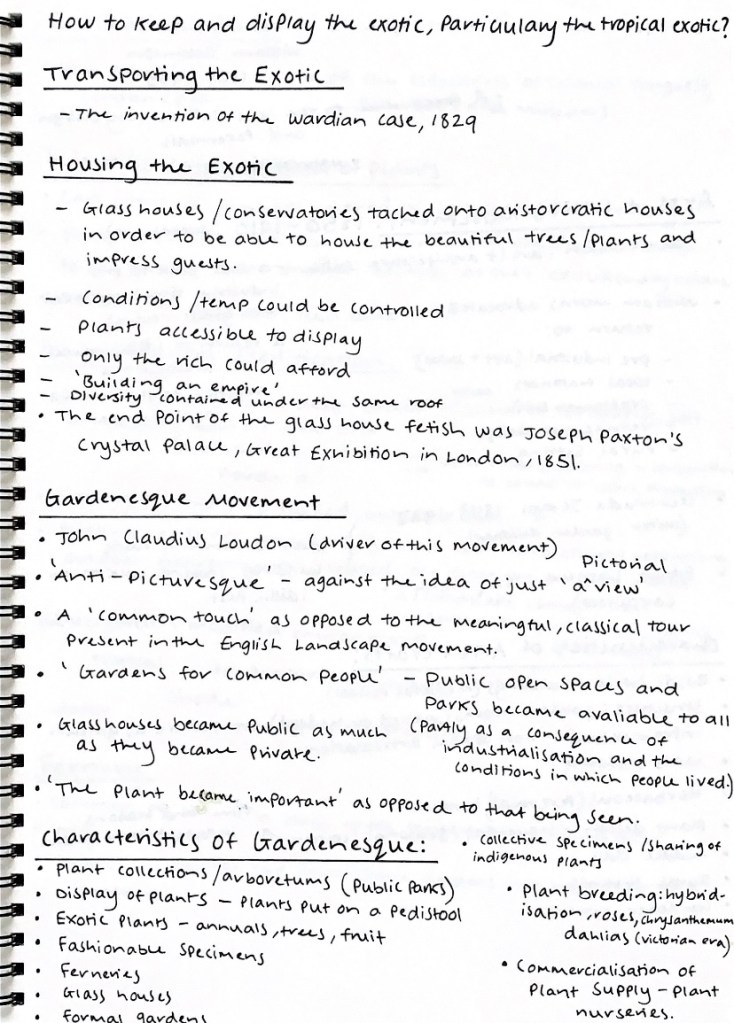 How to keep and display the exotic, Particulary the tropical exotic?
Transporting the Exotic
- The invention of the wardian case, 1829
Housing the Exotic
- Glass houses / conservatories tached onto aristorcratic houses
in order to be able to house the beautiful trees/plants and
impress guests.
- Conditions / temp could be controlled
- Plants accessible to display
- Only the rich could afford
- 'Building an empire'
- Diversity contained under the same roof
• The end point of the glass house fetish was Joseph Paxton's
Crystal Palace, Great Exhibition in London, 1851.
Gardenesque Movement
• John Claudius Loudon (driver of this movement)
• 'Anti-Picturesque - against the idea of just 'a Pictorial view'
• A 'common touch' as opposed to the meaningful, classical tour
Present in the English Landscape movement.
• 'Gardens for common people' - Public open spaces and
Parks became avaliable to all
(Partly as a consequence of
industrialisation and the
conditions in which people lived.)
• Glasshouses became Public as much
as they became private.
• 'The Plant became important' as opposed to that being seen.
Characteristics of Gardenesque:
• Plant collections/arboretums (Public Parks)
• Display of plants - Plants put on a pedistool
• Exotic Plants - annuals, trees, fruit
• Fashionable specimens
• Ferneries
• Glass houses
• Formal gardens
• Collective specimens / sharing of
indigenous plants
• Plant breeding: hybrid-
isation, roses, chrysanthemum
dahlias (victorian era)
• Commercialisation of
Plant Supply - Plant
nurseries.